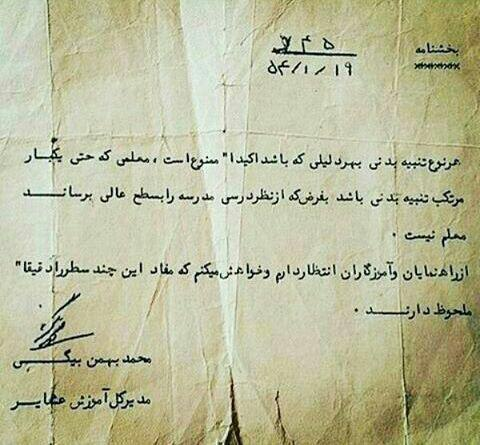 بخشنامه
۷۴۵
۵۴/۱/۱۹
هرنوع تنبیه بدنی بهردلیلی که باشد اکیدا" ممنوع است ، معلمی که حتی یکبار
مرتکب تنبیه بدنی باشد بفرض که از نظر درسی مدرسه را بسطح عالی برساند
معلم نیست .
از راهنمایان و آموزگاران انتظار دارم و خواهش میکنم که مفاد این چند سطر را دقیقا"
ملحوظ دارند .
محمد بهمن بیگی
مدیرکل آموزش عشایر